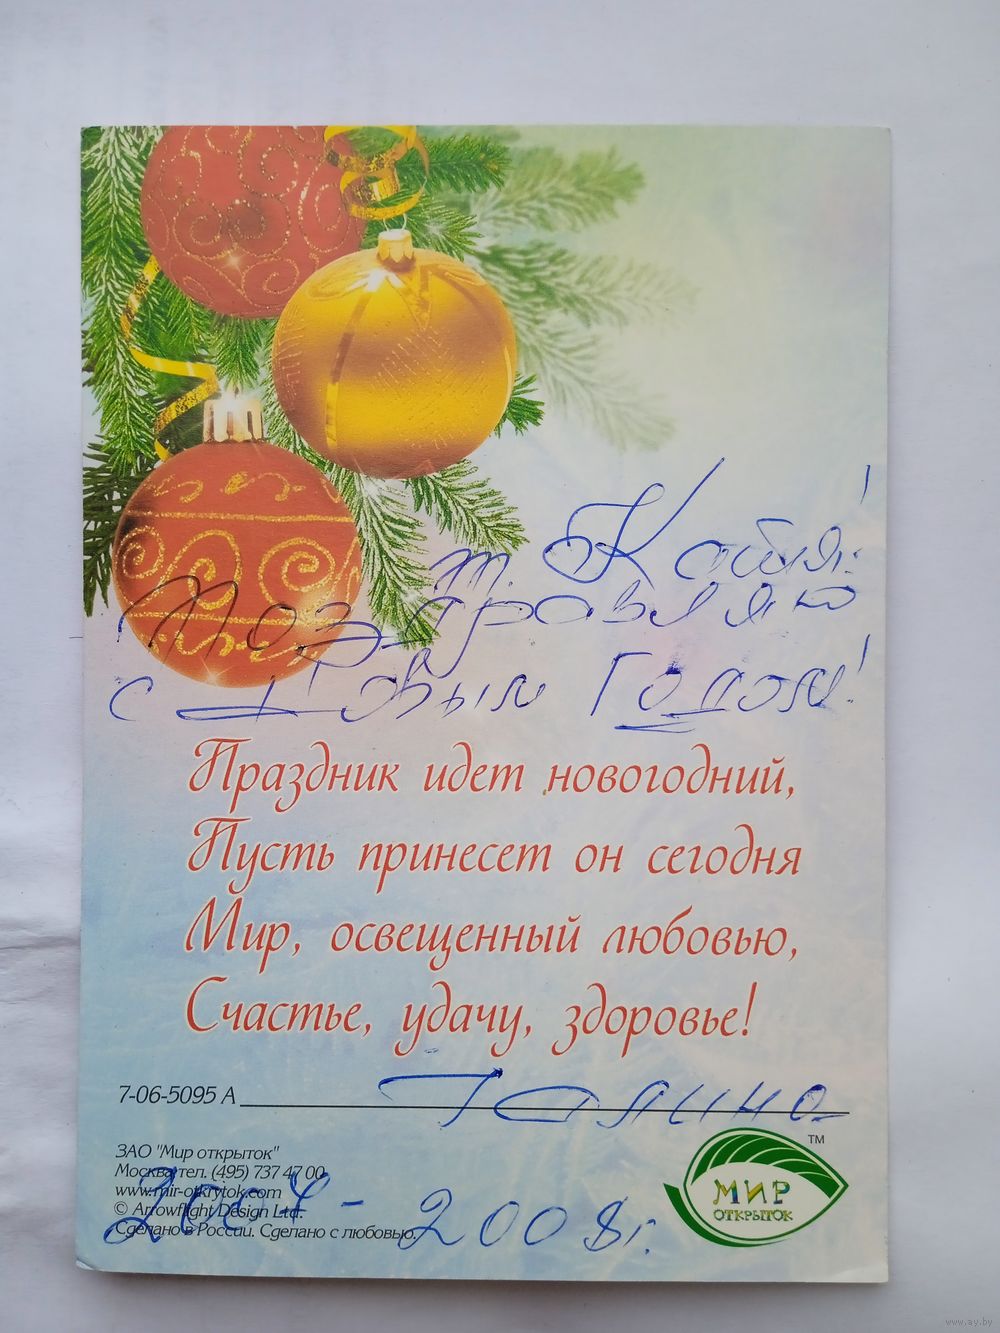 т. Катя!
Поздравляю
с Новым Годом!
Праздник идет новогодний,
Пусть принесет он сегодня
Мир, освещенный любовью,
Счастье, удачу, здоровье!
7-06-5095 А
Галина
ЗАО "Мир открыток"
Москва тел. (495) 737 47 00
www.mir-otkrytok.com
© Arrowflight Design Ltd.
Сделано в России. Сделано с любовью.
2007 - 2008 г.
МИР
ОТКРЫТОК
TM
www.ay.by